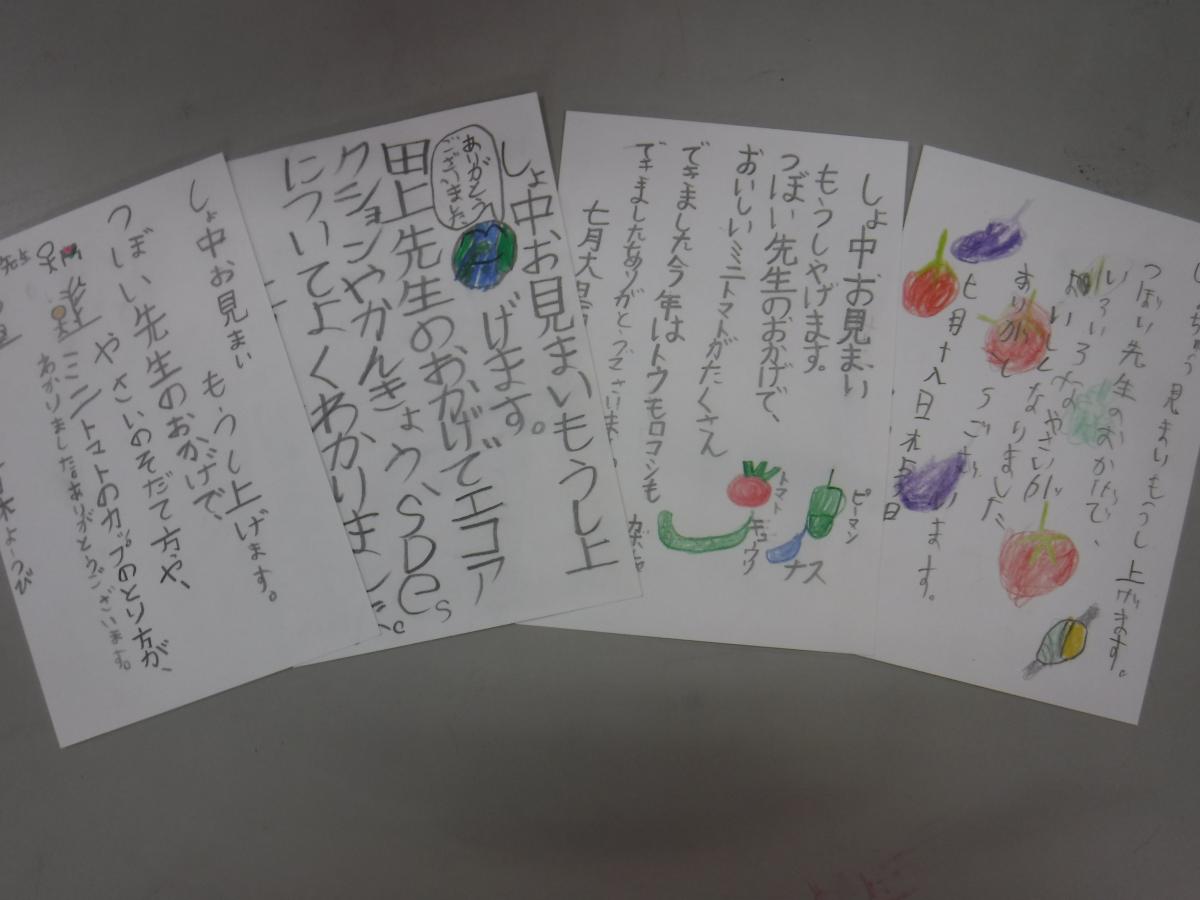 見まいもうし上げます。
つぼい先生のおかげで、
いろいろなやさいが
おいしくなりました
ありがとうございます。
七月十八日木よう日
しょ中お見まい
もうしやげます。
つぼい先生のおかげで、
おいしいミニトマトがたくさん
できました今年はトウモロコシも
できましたありがとうございま
七月大
ピーマン
トマト
キュウリ
ナス
しょ中お見まいもうし上
げます。
ありがとう
ございました
田上先生のおかげでエコア
クションやかんきょう、SDGs
についてよくわかりました。
しょ中お見まい もうし上げます。
つぼい先生のおかげで、
やさいのそだて方や、
ミニトマトのカップのとり方が、
わかりました。ありがとうございます。
先生
木ようび